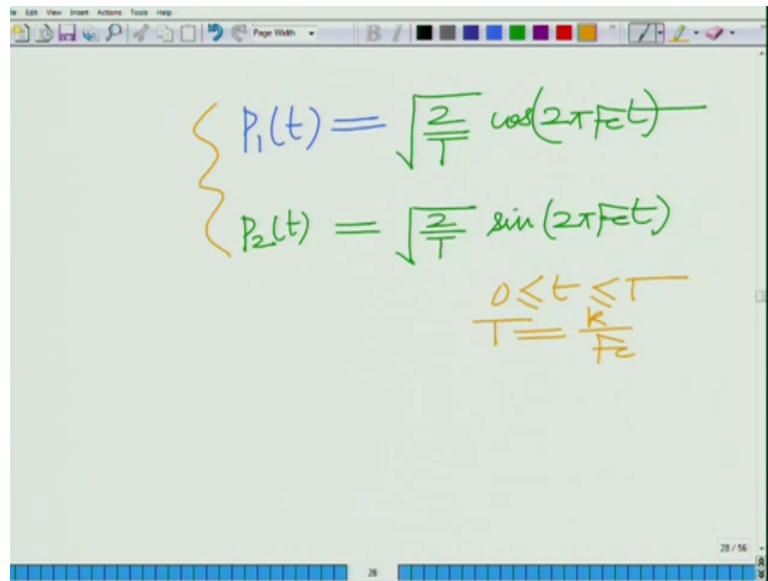 Edit View Insert Actions Tools Help
Page Width B I
P₁(t) = √(2/T) cos(2πFct)
P₂(t) = √(2/T) sin(2πFct)
0 ≤ t ≤ T
T = K/Fc
28 / 56
28